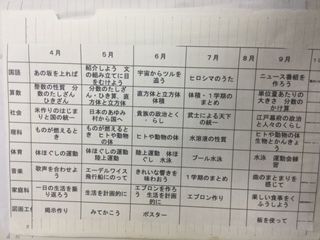 4月 5月 6月 7月 8月 9月
国語 あの坂を上れば 紹介しよう 文の組み立てに目をむけよう 宇宙からツルを追う ヒロシマのうた ニュース番組を作ろう
算数 整数の性質 分数のたしざんひきざん 分数のたしざん・ひき算、直方体と立方体 直方体と立方体 体積 体積・1学期のまとめ 単位量あたりの大きさ 分数のかけ算
社会 米作りのはじまりと国の統一 日本のあゆみ 村から国へ 貴族の政治とくらし 武士による天下の統一 江戸幕府の政治と人々のくらし
理科 ものが燃えるとき ものが燃えるとき ヒトや動物の体 ヒトや動物の体 水溶液の性質 ヒトや動物の体 生物とかんきょう
体育 体ほぐしの運動 体ほぐしの運動 陸上運動 陸上運動 体ほぐし 水泳 プール水泳 水泳 運動会練習
音楽 歌声を合わせよう エーデルワイス 飛行船にのって きれいな響きを味わおう 1学期のまとめ 曲のまとまりを感じて
家庭科 一日の生活を振り返ろう 生活を計画的に エプロンを作ろう 生活を計画的に エプロン作り 楽しい食事をくふうしよう
図画工 掲示作り みてかこう ポスター 板を使って